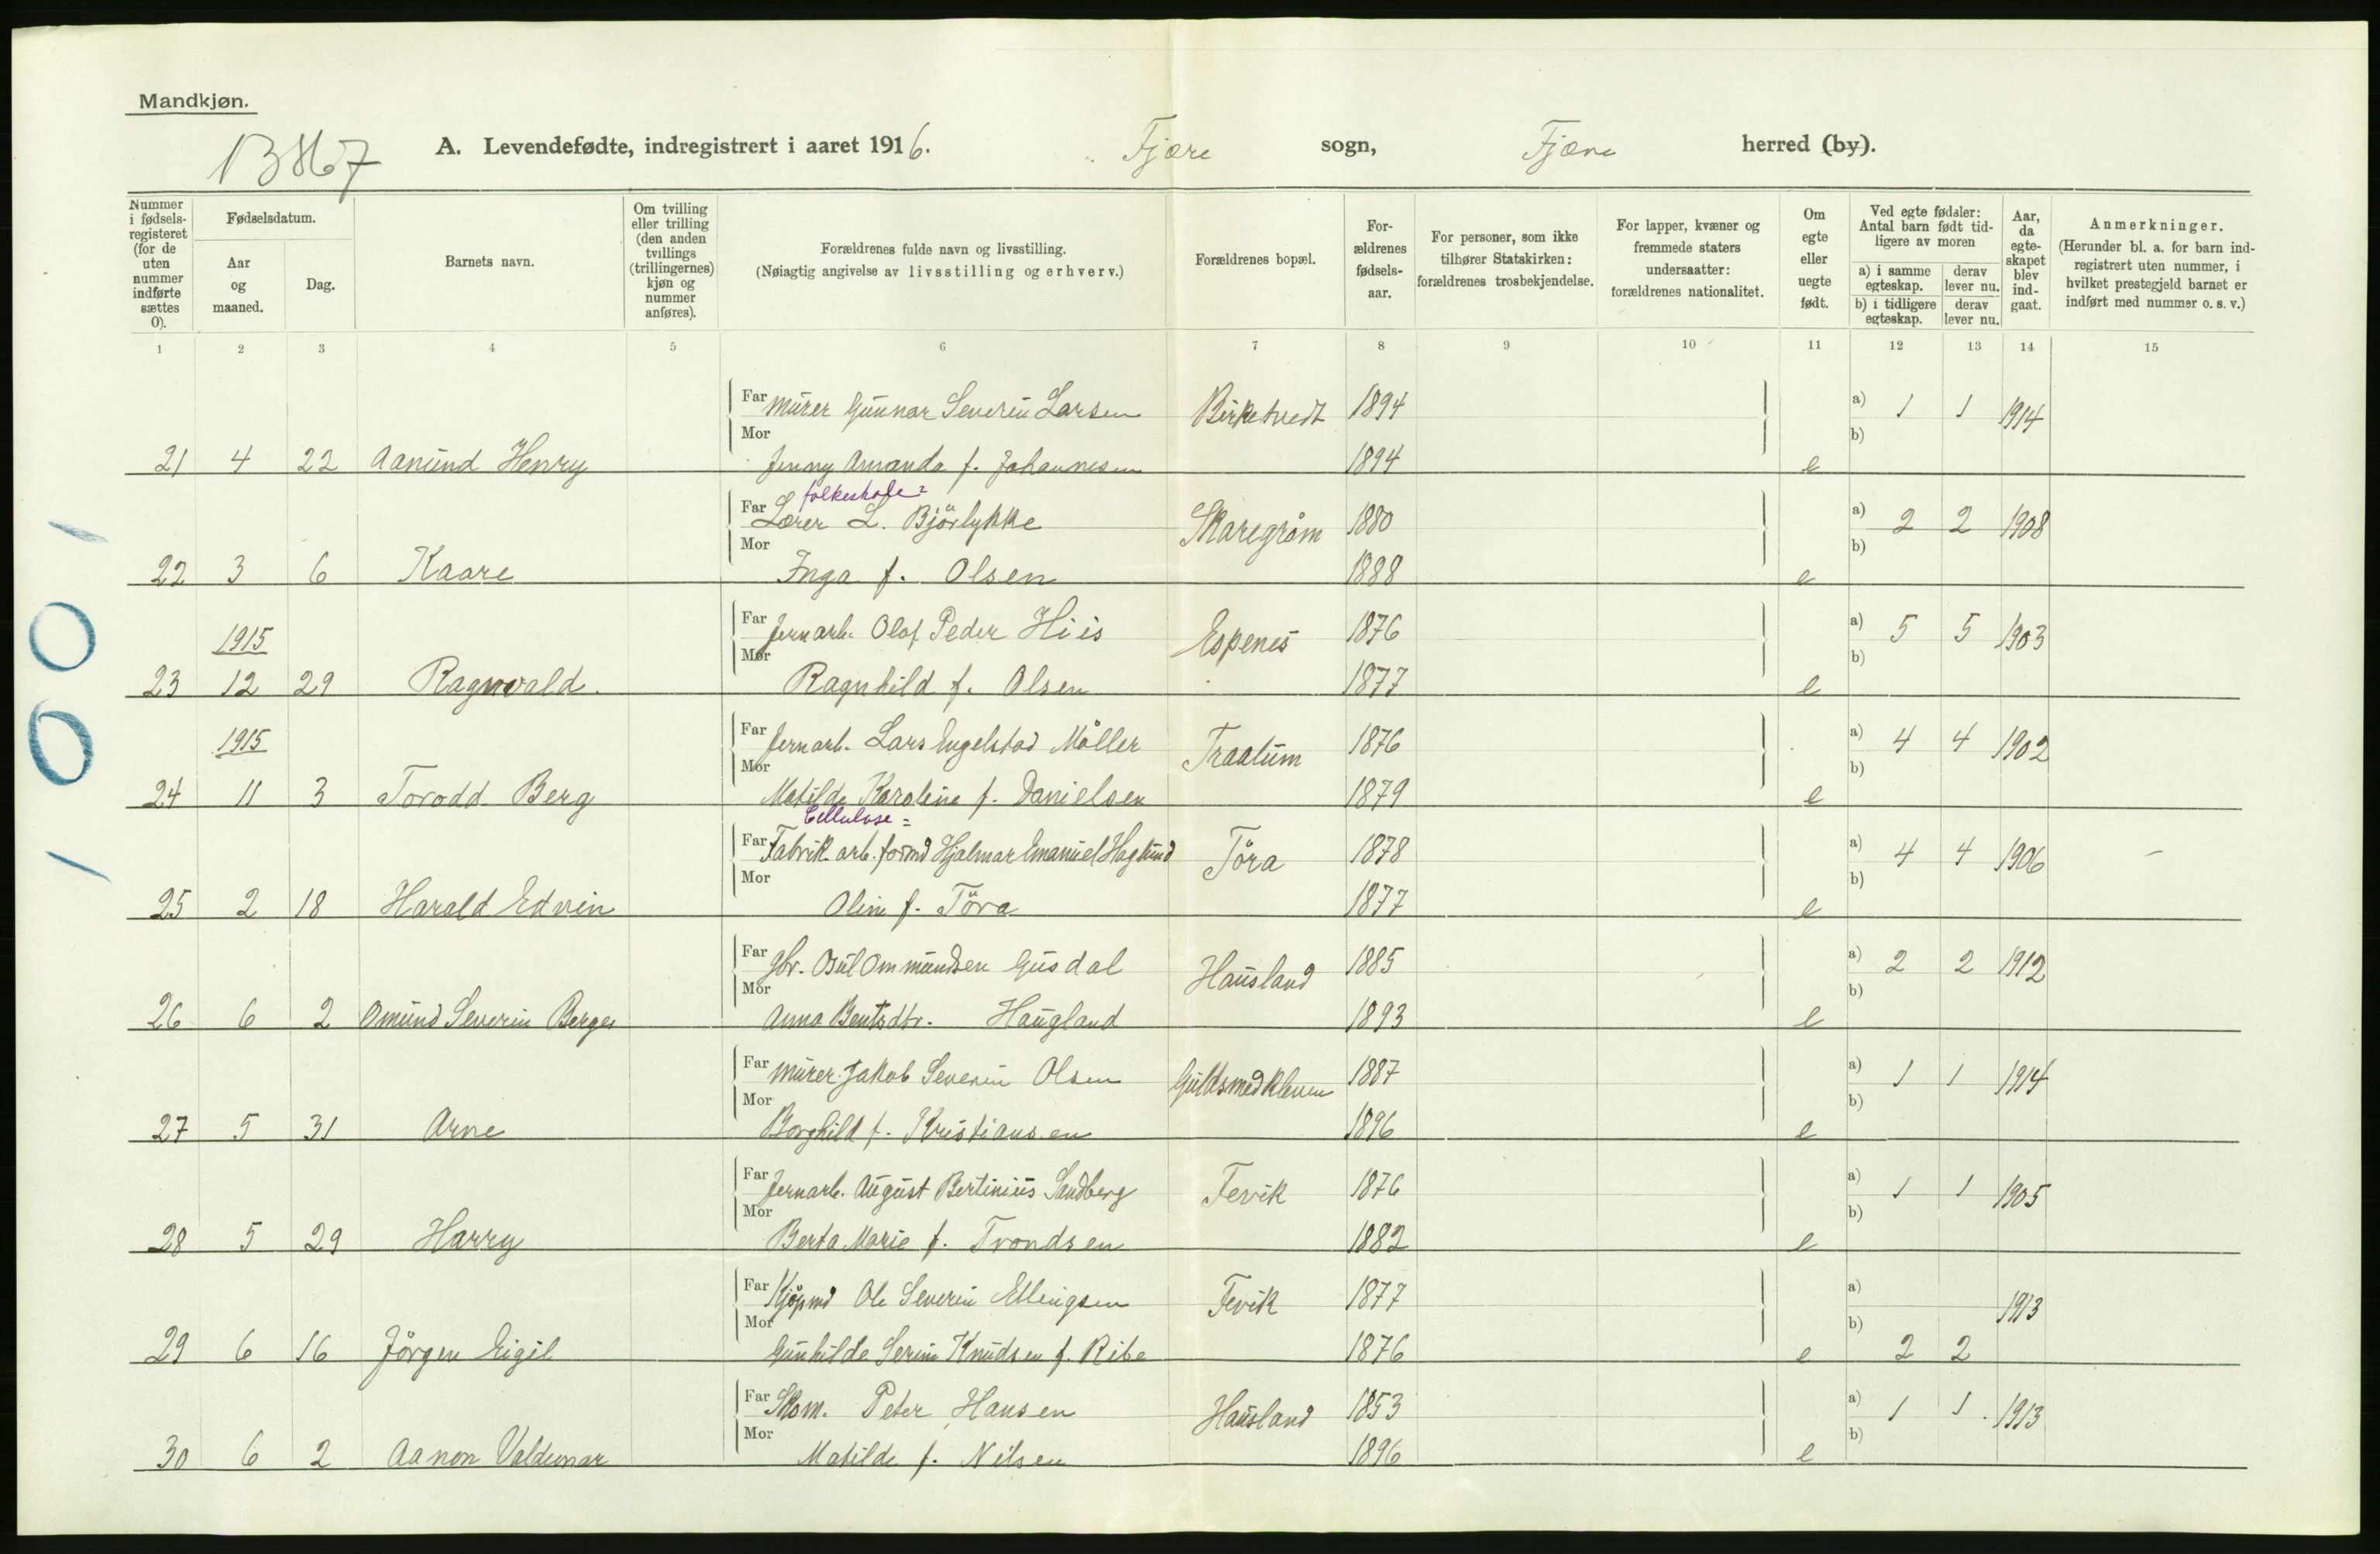 Mandkjøn.
13867
A. Levendefødte, indregistrert i aaret 1916. Fjære sogn, Fjære herred (by).
Nummer i fødsels-registeret (for de uten nummer indførte sættes 0).
Fødselsdatum.
Aar og maaned.
Dag.
Barnets navn.
Om tvilling eller trilling (den anden tvillings (trillingernes) kjøn og nummer anføres).
Forældrenes fulde navn og livsstilling.
(Nøiagtig angivelse av livsstilling og erhverv.)
Forældrenes bopæl.
For-ældrenes fødsels-aar.
For personer, som ikke tilhører Statskirken: forældrenes trosbekjendelse.
For lapper, kvæner og fremmede staters undersaatter: forældrenes nationalitet.
Om egte eller uegte født.
Ved egte fødsler: Antal barn født tid-ligere av moren
a) i samme egteskap. derav lever nu.
b) i tidligere egteskap. derav lever nu.
Aar, da egte-skapet blev ind-gaat.
Anmerkninger.
(Herunder bl. a. for barn ind-registrert uten nummer, i hvilket prestegjeld barnet er indført med nummer o. s. v.)
1 2 3 4 5 6 7 8 9 10 11 12 13 14 15
Far Murer Gunnar Severin Larsen Birketvedt 1894 a) 1 1 1914
Mor b)
21 4 22 Aanund Henry Jenny Amanda f. Johannesen 1894 e
folkeskole=
Far Lærer L. Bjørlykke Skaregrøm 1880 a) 2 2 1908
Mor b)
22 3 6 Kaare Inga f. Olsen 1888 e
1915 Far Jernarb. Olaf Peder Hiis Espenes 1876 a) 5 5 1903
Mor b)
23 12 29 Ragnvald. Ragnhild f. Olsen 1877 e
1915 Far Jernarb. Lars Engelstad Møller Traalum 1876 a) 4 4 1902
Mor b)
24 11 3 Torodd Berg Matilde Karoline f. Danielsen 1879 e
Cellulose=
Far Fabrik arb. formd Hjalmar Emanuel Haglund Töra 1878 a) 4 4 1906
Mor b)
25 2 18 Harald Edvin Olin f. Töra 1877 e
Far gbr. Osul Ommundsen Gusdal Hausland 1885 a) 2 2 1912
Mor b)
26 6 2 Omund Severin Berge Anna Bentsdtr. Haugland 1893 e
Far Murer Jakob Severin Olsen Guldsmedkleven 1887 a) 1 1 1914
Mor b)
27 5 31 Arne Borghild f. Kristiansen 1896 e
Far Jernarb. August Bertinius Sandberg Fevik 1876 a) 1 1 1905
Mor b)
28 5 29 Harry Berta Marie f. Trondsen 1882 e
Far Kjøpmd Ole Severin Ellingsen Fevik 1877 a) 1913
Mor b)
29 6 16 Jörgen Eigil Gunhilde Serine Knudsen f. Ribe 1876 e 2 2
Far Skom. Peter Hansen Hausland 1853 a) 1 1 1913
Mor b)
30 6 2 Aanon Valdemar Matilde f. Nilsen 1896 e
1001